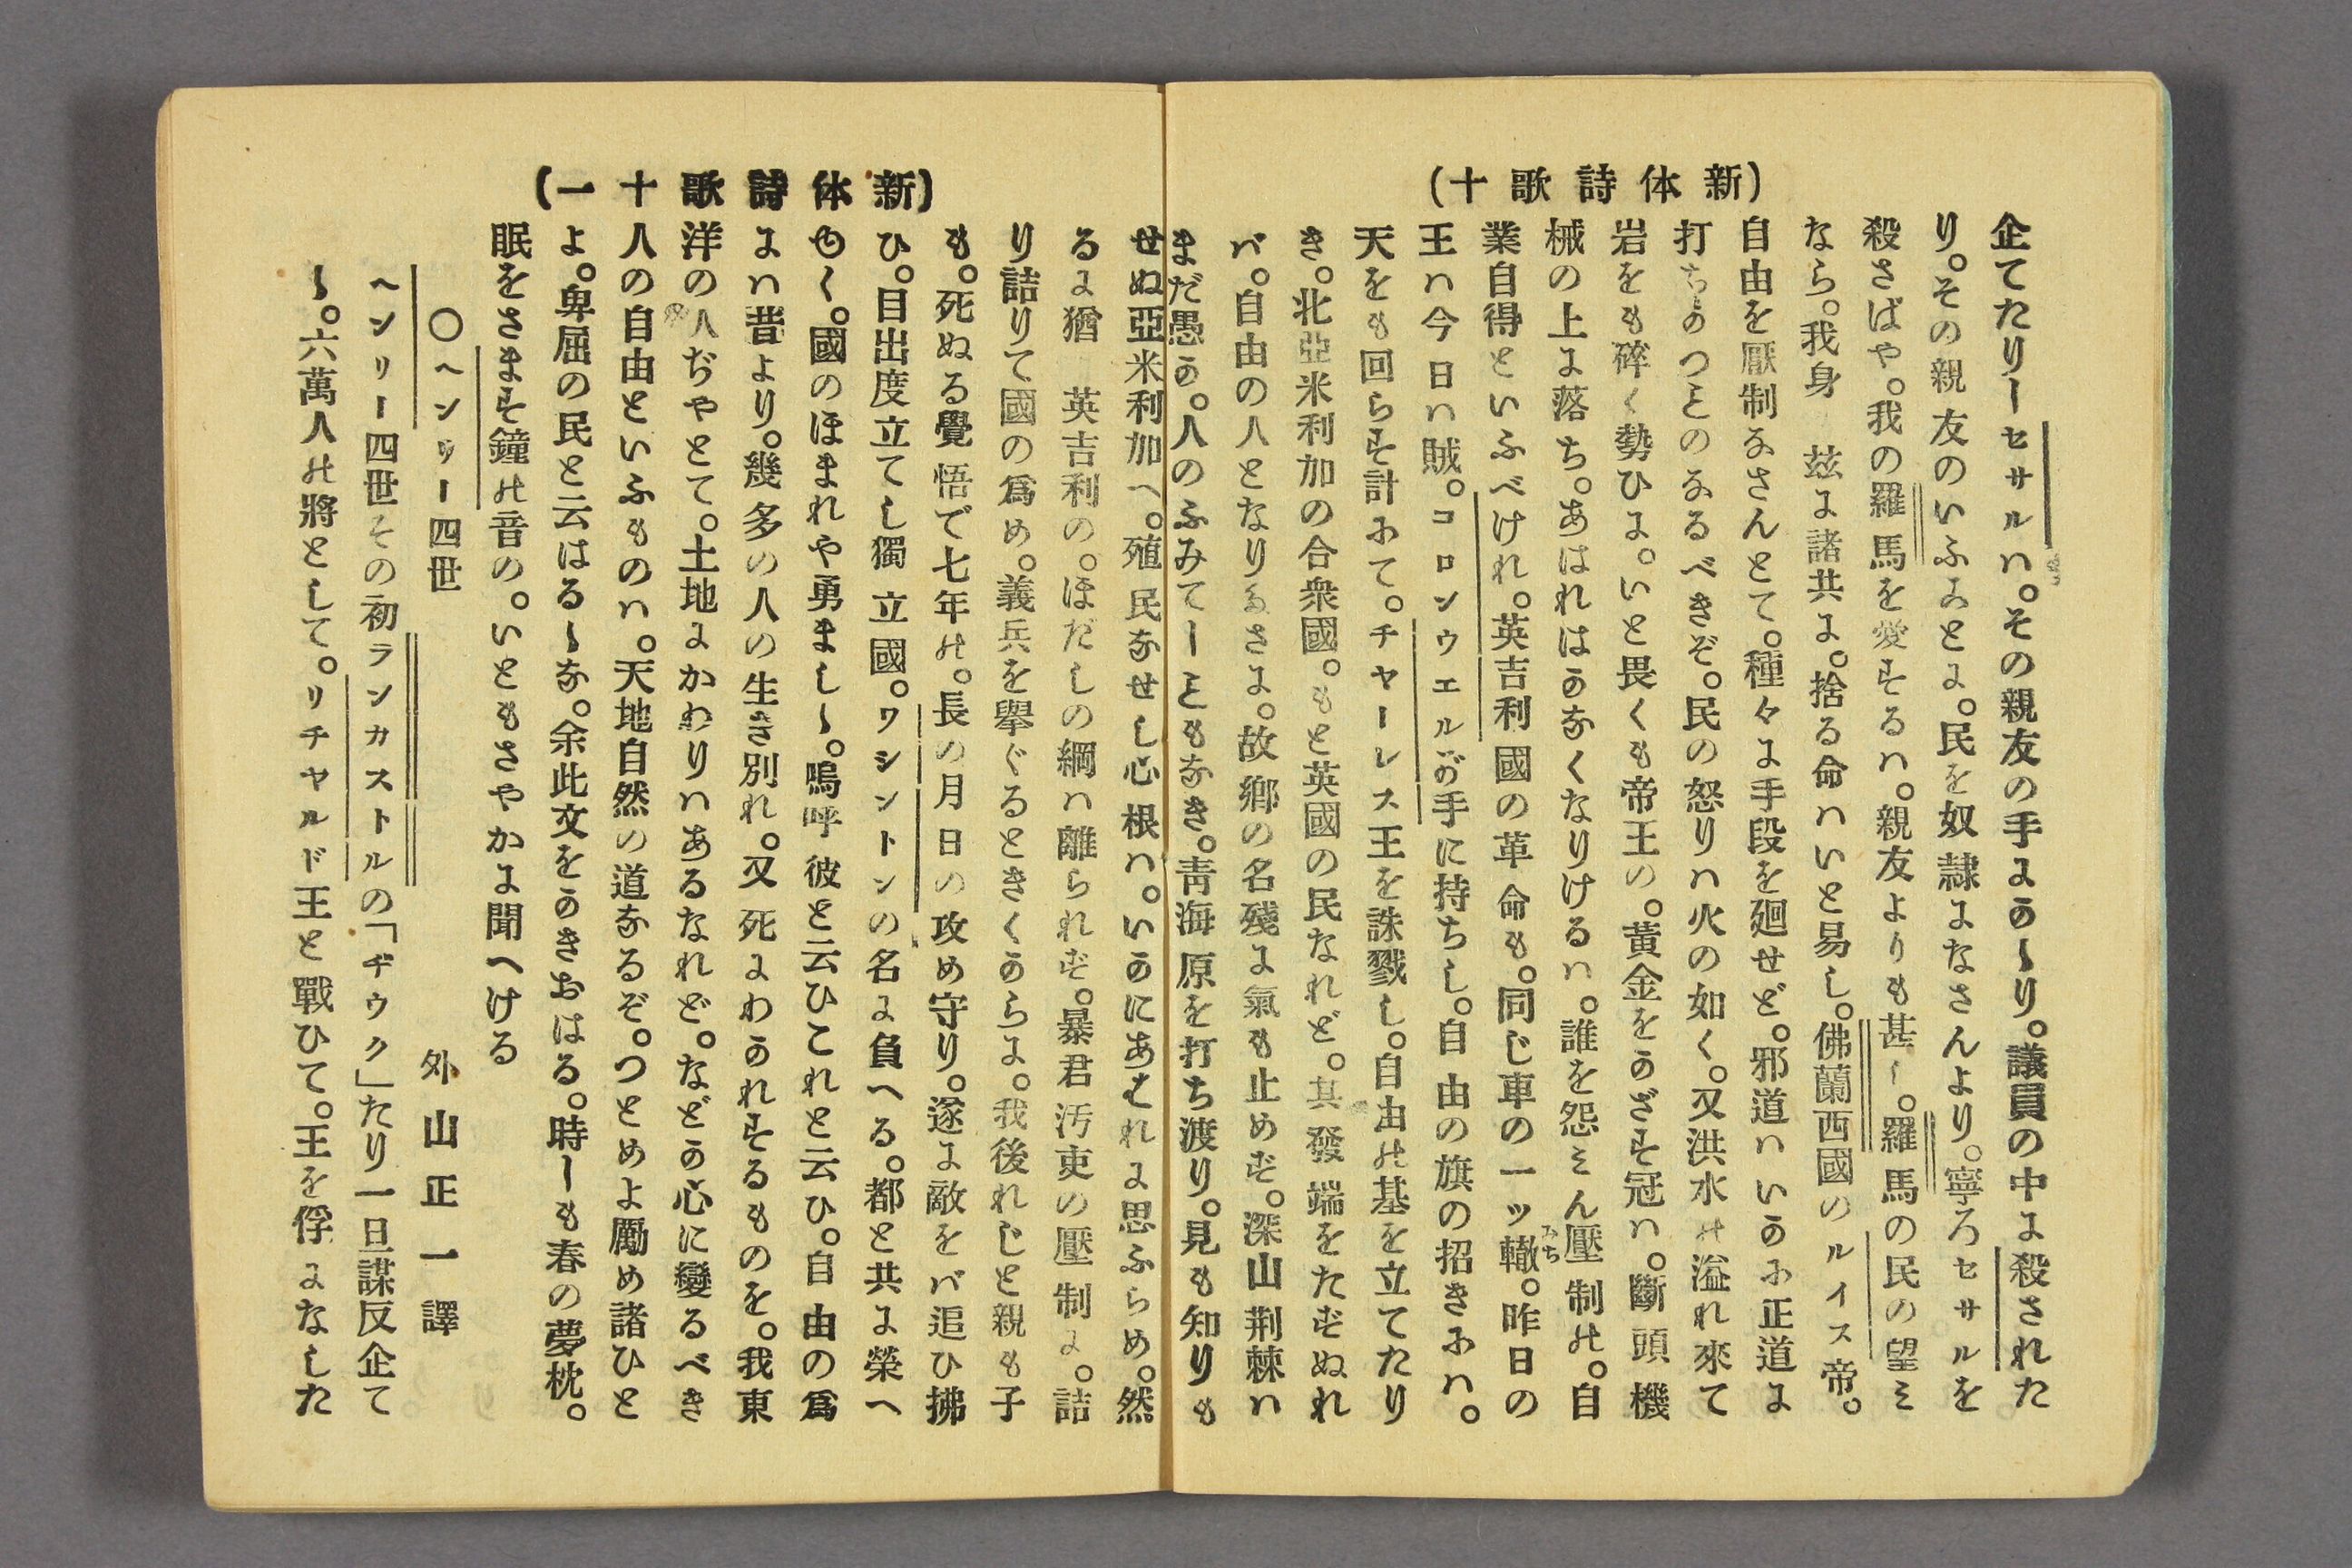 (新体詩歌十)
企てたりーセサルハ。その親友の手にかゝり。議員の中に殺された
り。その親友のいふことに。民を奴隷になさんより。寧ろセサルを
殺さばや。我の羅馬を愛するハ。親友よりも甚し。羅馬の民の望ミ
なら。我身 玆に諸共に。捨る命ハいと易し。佛蘭西國のルイス帝。
自由を厭制なさんとて。種々に手段を廻せど。邪道ハいかで正道に
打ちかつことのなるべきぞ。民の怒りハ火の如く。又洪水の溢れ來て
岩をも碎く勢ひに。いと畏くも帝王の。黄金をかざす冠ハ。斷頭機
械の上に落ち。あはれはかなくなりけるハ。誰を怨ミん壓制の。自
業自得といふべけれ。英吉利國の革命も。同じ車の一ッ轍。昨日の
王ハ今日ハ賊。コロンウエルが手に持ちし。自由の旗の招きにハ。
天をも回らす計にて。チヤーレス王を誅戮し。自由の基を立てたり
き。北亞米利加の合衆國。もと英國の民なれど。其發端をたずぬれ
バ。自由の人となりたさに。故郷の名殘に氣も止めず。深山荆棘ハ
まだ愚か。人のふみてしこともなき。靑海原を打ち渡り。見も知りも
(新体詩歌十一)
せぬ亞米利加へ。殖民なせし心根ハ。いかにあはれに思ふらめ。然
るに猶 英吉利の。ほだしの綱ハ離られず。暴君汚吏の壓制に。詰
り詰りて國の爲め。義兵を擧ぐるときくからに。我後れじと親も子
も。死ぬる覺悟で七年の。長の月日の攻め守り。遂に敵をバ追ひ拂
ひ。目出度立てし獨立國。ワシントンの名に負へる。都と共に榮へ
ゆく。國のほまれや勇ましゝ。嗚呼彼と云ひこれと云ひ。自由の爲
にハ昔より。幾多の人の生き別れ。又死にわかれするものを。我東
洋の人ぢやとて。土地にかわりハあるなれど。などか心に變るべき
人の自由といふものハ。天地自然の道なるぞ。つとめよ勵め諸ひと
よ。卑屈の民と云はるゝな。余此文をかきおはる。時しも春の夢枕。
眠をさます鐘の音の。いともさやかに聞へける
〇ヘンリー四世 外山正一譯
ヘンリー四世その初ランカストルの「ヂウク」たり一旦謀反企て
ゝ。六萬人の將として。リチヤルド王と戰ひて。王を俘になした